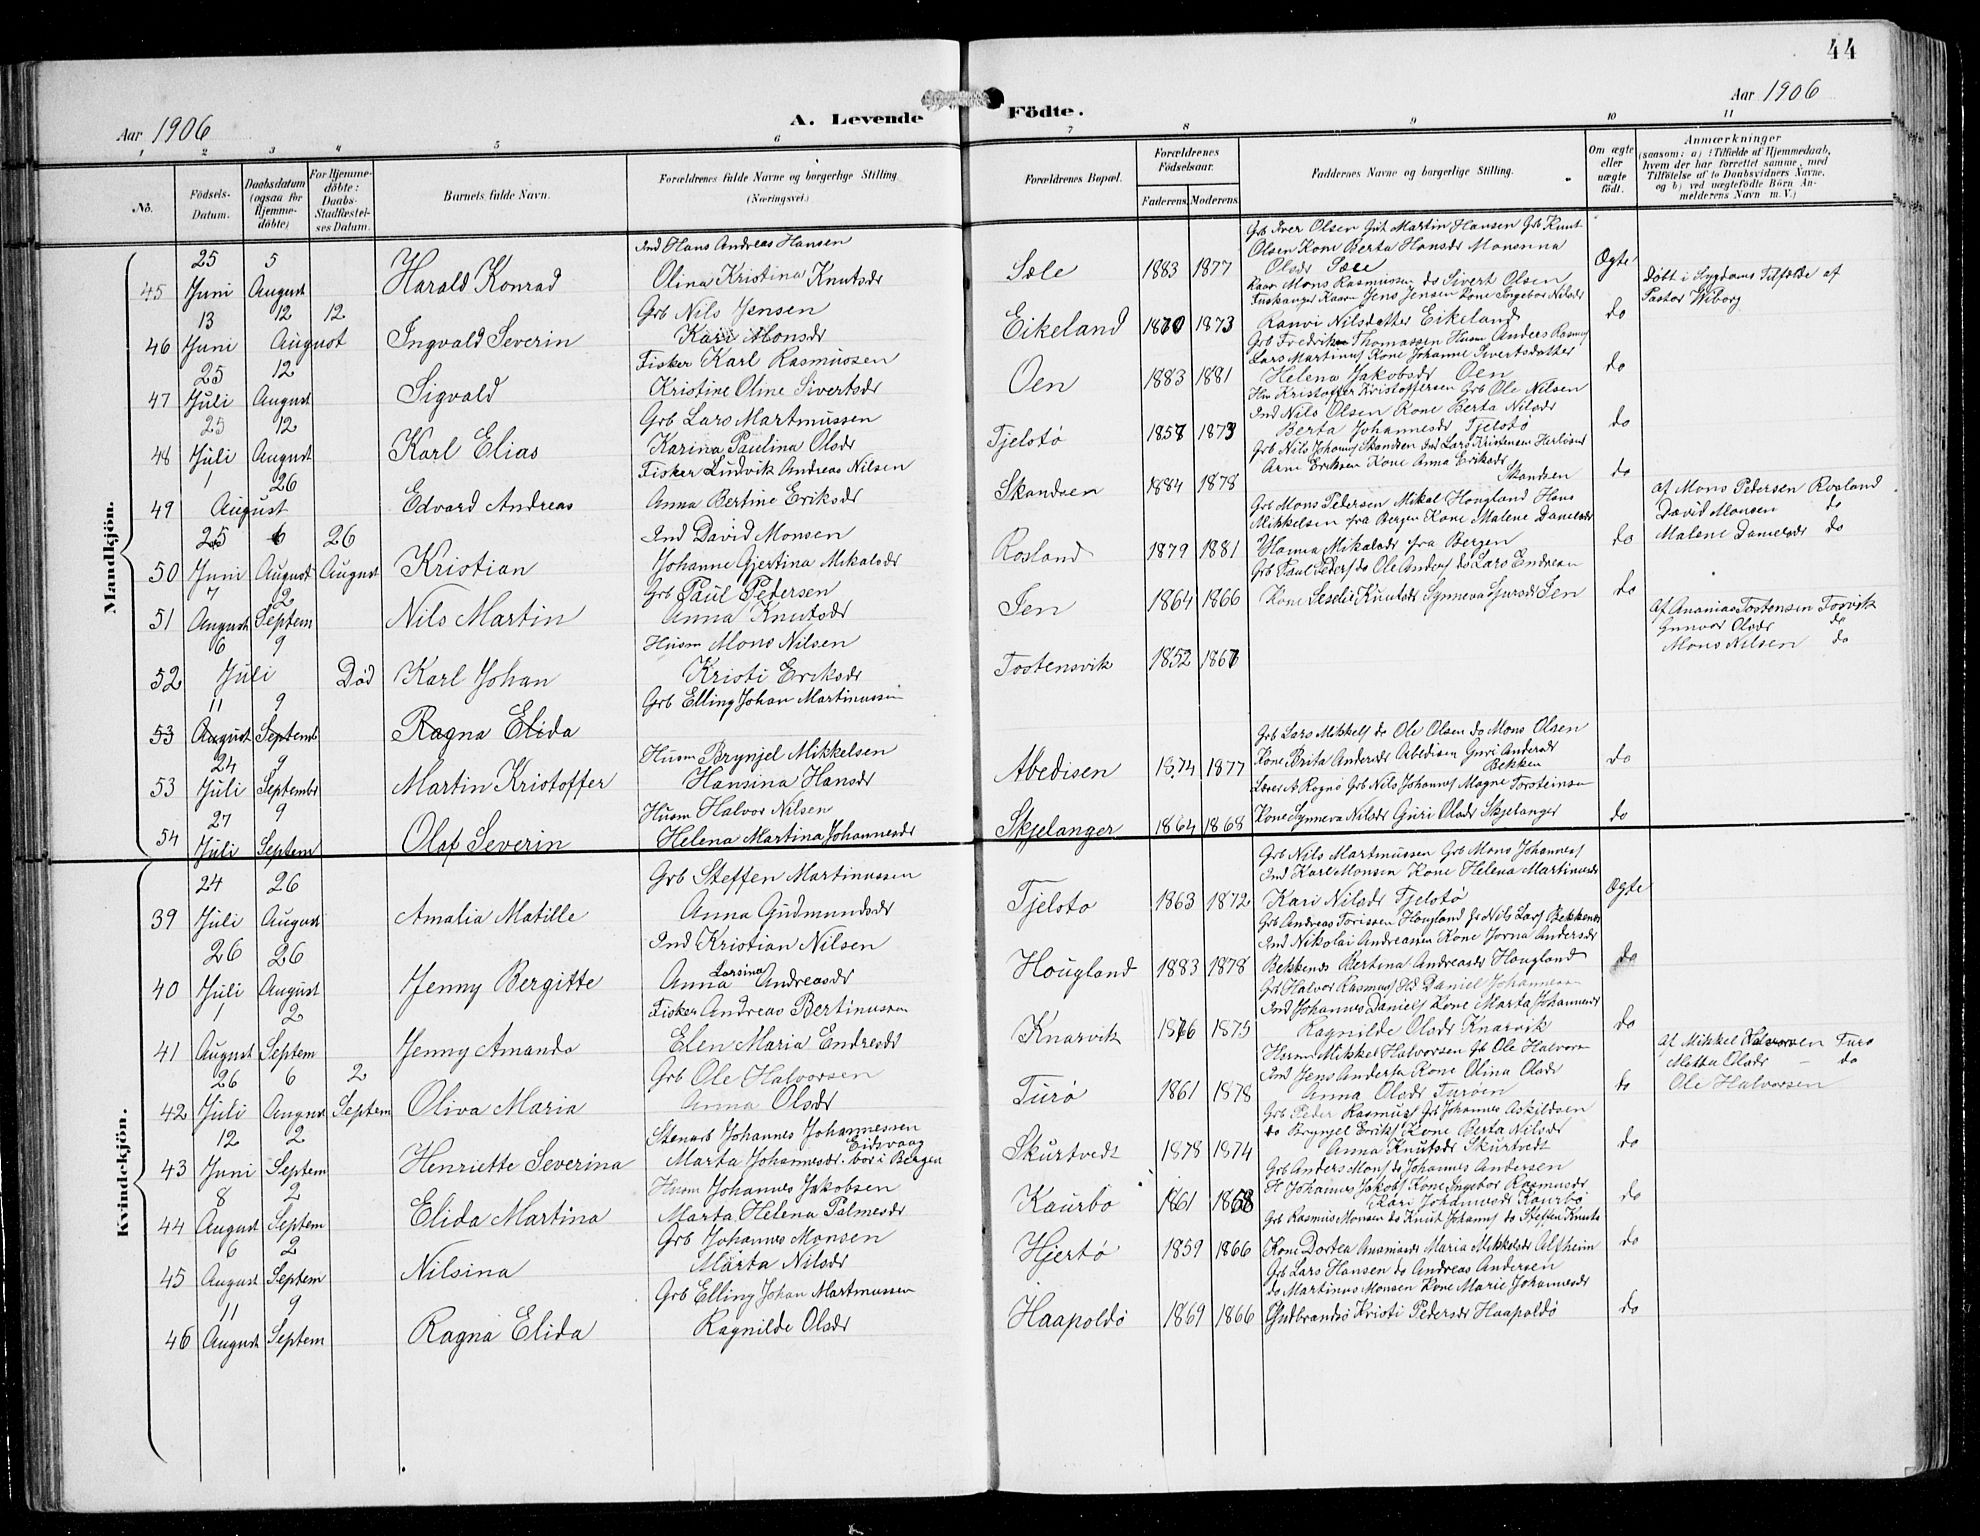 44
Aar 1906
A. Levende Födte.
Aar 1906
1 2 3 4 5 6 7 8 9 10 11
No.
Födsels-Datum.
Daabsdatum (ogsaa for Hjemme-döbte)
For Hjemme-döbte: Daabs-Stadfæstel-ses Datum.
Barnets fulde Navn.
Forældrenes fulde Navne og borgerlige Stilling. (Næringsvei.)
Forældrenes Bopæl.
Forældrenes Födselsaar.
Faderens. Moderens.
Faddernes Navne og borgerlige Stilling.
Om ægte eller uægte födt.
Anmærkninger
(saasom: a) i Tilfælde af Hjemmedaab,
hvem der har forrettet samme, med
Tilföielse af to Daabsvidners Navne,
og b) ved uægtefödte Börn An-
melderens Navn m. V.)
Mandkjön.
45 25 Juni 5 August Harald Konrad
Ind Hans Andreas Hansen
Olina Kristina Knutsdr
Sæle 1883 1877
Grb Iver Olsen Gut Martin Hansen Grb Knut
Olsen Kone Berta Hansdr Monsina
Olsdr Sæle
Ægte
Döbt i Sygdoms Tilfælde af
Pastor Wiborg
46 13 Juni 12 12 August Ingvald Severin
Grb Nils Jensen
Kari Monsdr
Eikeland 1870 1873
Kaar Mons Rasmussen do Sivert Olsen
Kaarm Jens Jensen Kone Ingebor Nilsdr
Ranvi Nilsdatter Eikeland
do
47 25 Juli 12 August Sigvald
Fisker Karl Rasmussen
Kristine Oline Sivertsdr
Oen 1883 1881
Grb Fredrik Thomassen Husm Andreas Rasmus
Lars Martinus Kone Johanne Sivertsdatter
Helena Jakobsdr Oen
do
48 25 Juli 12 August Karl Elias
Grb Lars Martinussen
Karina Paulina Olsdr
Tjelstö 1857 1873
Hm Kristoffer Kristoffersen Grb Ole Nilsen
Ind Nils Olsen Kone Berta Nilsdr
Berta Johannesdr Tjelstö
do
49 1 26 August Edvard Andreas
Fisker Ludvik Andreas Nilsen
Anna Bertine Eriksdr
Skandsen 1884 1878
Grb Nils Johans Skandsen Ind Lars Kristensen
Arne Eriksen Kone Anna Eriksdr
Skandsen
do
50 25 Juni 6 August 26 August Kristian
Ind David Monsen
Johanne Gjertina Mikalsdr
Rosland 1879 1881
Grb Mons Pedersen Mikal Hougland Hans
Mikkelsen fra Bergen Kone Malene Danielsdr
Hanna Mikalsdr fra Bergen
do
af Mons Pedersen Rosland
David Monsen do
Malene Danielsdr do
51 7 August 2 Septem Nils Martin
Grb Paul Pedersen
Anna Knutsdr
Sen 1864 1866
Grb Paul Peders do Ole Anders do Lars Endresen
Kone Seselie Knutsdr Synneva Sjursdr Sen
do
52 6 9 Juli Död Karl Johan
Husm Mons Nilsen
Kristi Eriksdr
Tostensvik 1852 1867
af Ananias Tostensen Tosvik
Gunvor Olsdr do
Mons Nilsen do
53 11 August 9 Septemb Ragna Elida
Grb Elling Johan Martinussen
53 24 Juli 9 Septembr Martin Kristoffer
Husm Brynjel Mikkelsen
Hansina Hansdr
Abedisen 1874 1877
Grb Lars Mikkels do Ole Olsen do Mons Olsen
Kone Brita Andersdr Abedisen Guri Andersdr
Bekken
do
54 27 Juli 9 Septem Olaf Severin
Husm Halvor Nilsen
Helena Martina Johannesdr
Skjelanger 1864 1868
Lærer A. Rognö Grb Nils Johannes Magne Torsteinsen
Kone Synneva Nilsdr Guri Olsdr Skjelanger
do
Kvindekjön.
39 24 Juli 26 August Amalia Matille
Grb Steffen Martinussen
Anna Gudmundsdr
Tjelsto 1863 1872
Grb Nils Martinussen Grb Mons Johannes
Ind Karl Monsen Kone Helena Martinusdr
Kari Nilsdr Tjelstö
Ægte
40 26 Juli 26 August Jenny Bergitte
Ind Kristian Nilsen
Anna Larsina Andreasdr
Hougland 1883 1878
Grb Andreas Torissen Hougland Gr Nils Lars Bekkenes
Ind Nikolai Andreassen Kone Jorna Andersdr
Bekkenes Bertina Andreasdr Hougland
do
41 1 August 2 Septem Jenny Amanda
Fisker Andreas Bertinussen
Elen Maria Endresdr
Knarvik 1876 1875
Grb Halvor Rasmus Daniel Johannessen
Ind Johannes Daniels Kone Marta Johannesdr
Ragnilde Olsdr Knarvik
do
42 26 Juli 6 August 2 Septem Oliva Maria
Grb Ole Halvorsen
Anna Olsdr
Turö 1861 1878
Husm Mikkel Halvorsen Gb Ole Halvors
Ind Jens Anders Kone Olina Olsdr
Anna Olsdr Turöen
do
af Mikkel Halvorsen Turö
Metta Olsdr — do
Ole Halvorsen
43 12 Juni 2 Septem Henriette Severina
Stenarb Johannes Johannessen
Eidsvaag
Marta Johannesdr bor i Bergen
Skurtvedt 1878 1874
Grb Peder Rasmus Grb Johannes Askildsen
do Brynjel Eriks Kone Berta Nilsdr
Anna Knutsdr Skurtvedt
do
44 8 August 2 Septem Elida Martina
Husm Johannes Jakobsen
Marta Helena Palmesdr
Kaurbo 1861 1868
Grb Anders Mons do Johannes Andersen
H Johannes Jakobs Kone Ingebor Rasmusdr
Kari Johannesdr Kaurbö
do
45 6 August 2 Septem Nilsina
Grb Johannes Monsen
Marta Nilsdr
Hjertö 1859 1866
Grb Rasmus Monsen do Knut Johans do Steffen Knuts
Kone Dortea Ananiasdr Maria Mikkelsdr Altheim
do
46 11 August 9 Septem Ragna Elida
Grb Elling Johan Martinussen
Ragnilde Olsdr
Haapoldö 1869 1866
Grb Lars Hansen do Andreas Andersen
do Martinus Monsen Kone Marie Johannesdr
Gudbrandsö Kristi Pedersdr Haapoldö
do